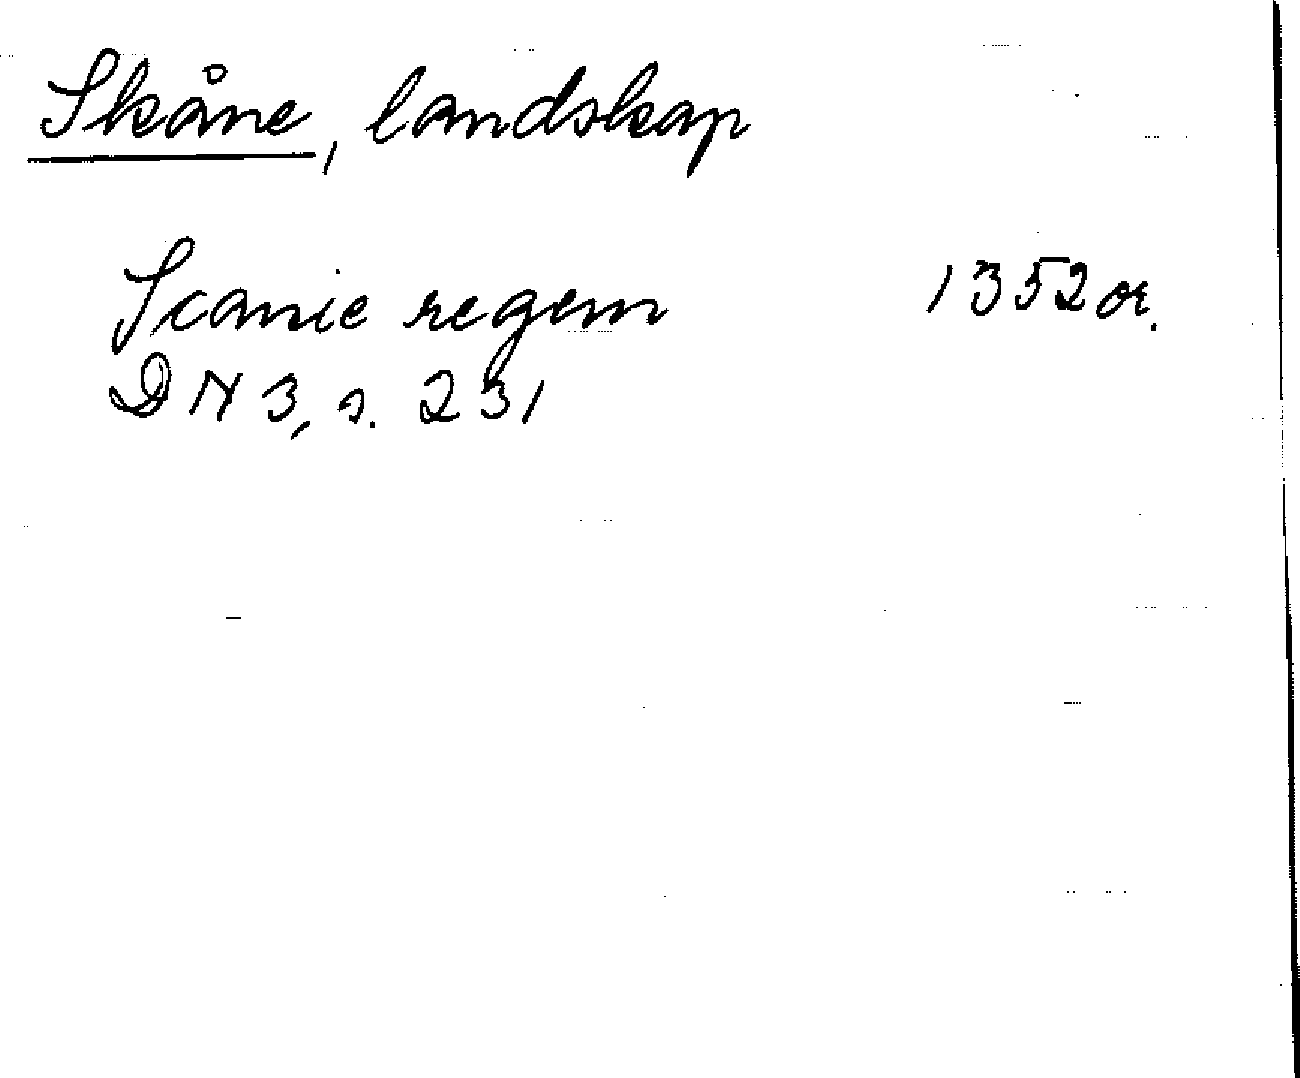 Skåne, landskap
Scanie regem 1352 or.
DN 3, s. 231